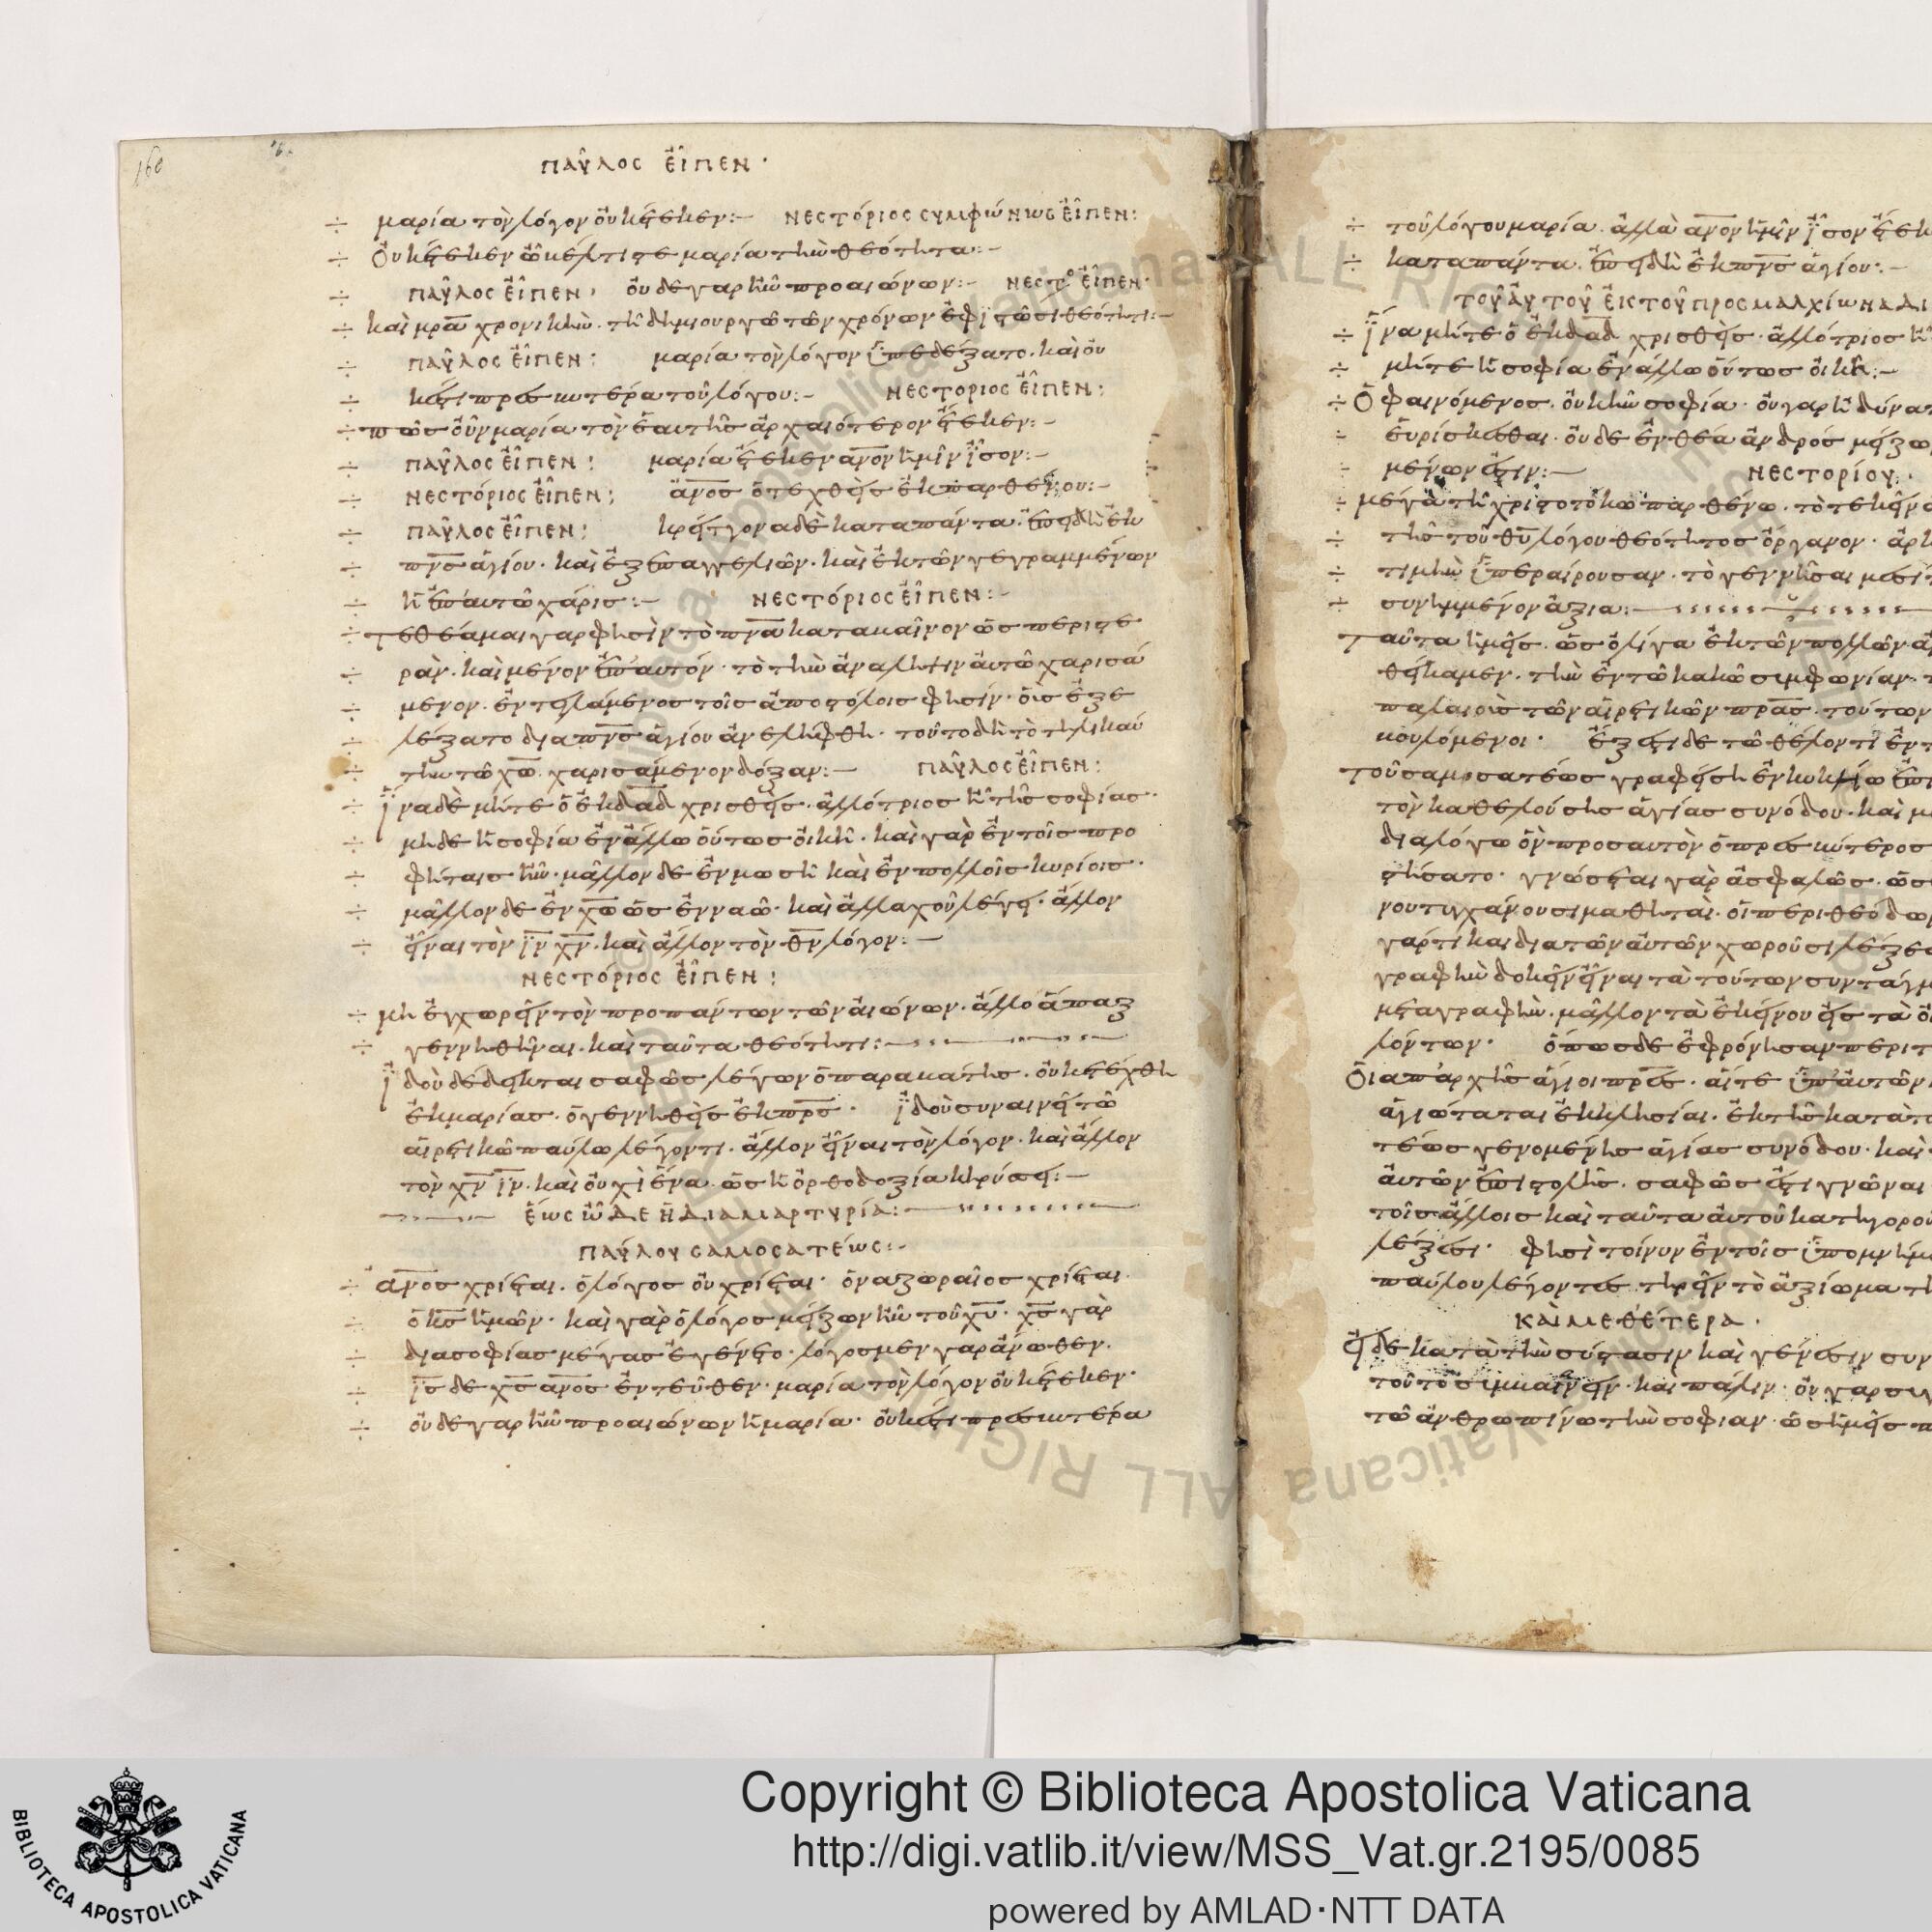 160
ΠΑῦΛΟΣ ΕἶΠΕΝ·
÷ μαρία τὸν λόγον οὐκ ἔτεκεν:— ΝΕΣΤόΡΙΟΣ ΣΥΜΦώΝΩΣ ΕἶΠΕΝ:
÷ Οὐκ ἔτεκεν ὦ βέλτιστε μαρία τὴν θεότητα:—
÷ ΠΑῦΛΟΣ ΕἶΠΕΝ· οὐδε γαρ ἦν προ αιώνων:— ΝΕΣΤο ΕἶΠΕΝ·
÷ καὶ μρα χρονικὴν. τῆ δημιουργῶ τῶν χρόνων ἐφιστῶσι θεότητι:—
÷ ΠΑῦΛΟΣ ΕἶΠΕΝ: μαρία τὸν λόγον ὑπεδέξατο. καὶ οὐ
÷ κέστι πρεσβυτέρα τοῦ λόγου:— ΝΕΣΤΟΡΙΟΣ ΕἶΠΕΝ:
÷ πῶς οὖν μαρία τὸν ἑαυτῆς ἀρχαιότερον ἔτεκεν:—
÷ ΠΑῦΛΟΣ ΕἶΠΕΝ: μαρία ἔτεκεν ανον ἡμῖν ἶσον:—
÷ ΝΕΣΤόΡΙΟΣ ΕἶΠΕΝ: ἄνος ὁ τεχθεὶς ἐκ παρθένου:—
÷ ΠΑῦΛΟΣ ΕἶΠΕΝ: κρείττονα δὲ κατα πάντα. ἐπειδὴ ἐκ
÷ πνς ἁγίου. καὶ ἐξ ἐπαγγελιῶν. καὶ ἐκ τῶν γεγραμμένων
÷ ἡ ἐπ αυτῶ χάρις:— ΝΕΣΤόΡΙΟΣ ΕἶΠΕΝ:—
÷ τεθέαμαι γαρ φησὶν τὸ πνα καταβαῖνον ὡς περιστε
÷ ρὰν. καὶ μένον ἐπ' αυτόν. τὸ τὴν ἀνάληψιν ἀυτῶ χαρισά
÷ μενον. ἐντειλάμενος τοῖς ἀποστόλοις φησὶν. οἷς ἐξε
÷ λέξατο δια πνς ἁγίου ἀνελήφθη. τοῦτο δὴ τὸ τηλικαύ
÷ την τῶ χω χαρισάμενον δόξαν:— ΠΑῦΛΟΣ ΕἶΠΕΝ:
÷ ἵνα δὲ μήτε ὁ ἐκ δαδ χρισθεὶς. ἀλλότριος ἦ τῆς σοφίας·
÷ μηδε ἡ σοφία ἐν ἄλλω οὕτως οἰκῆ. καὶ γὰρ ἐν τοῖς προ
÷ φήταις ἦν. μᾶλλον δε ἐν μωσῆ καὶ ἐν πολλοῖς κυρίοις·
÷ μᾶλλον δε ἐν χω ὡς ἐν ναῶ. καὶ ἀλλαχοῦ λέγει. ἄλλον
÷ εἶναι τὸν ιν χν. καὶ ἄλλον τὸν θν λόγον:—
ΝΕΣΤόΡΙΟΣ ΕἶΠΕΝ:
÷ μὴ ἐγχωρεῖν τὸν προ πάντων τῶν αἰώνων. ἄλλο ἅπαξ
÷ γεννηθῆναι. καὶ ταῦτα θεότητι:—
ἰδοὺ δέδεικται σαφῶς λέγων ὁ παραβάτης. οὐκ ετέχθη
ἐκ μαρίας. ὁ γεννηθεὶς ἐκ πρς· ἰδοὺ συναινεῖ τῶ
αἱρετικῶ παύλω λέγοντι. ἄλλον εἶναι τὸν λόγον. καὶ ἄλλον
τὸν χν ιν. καὶ οὐχὶ ἕνα. ὡς ἡ ὀρθοδοξία κηρύσσει:—
ἕΩΣ ὧΔΕ Ἡ ΔΙΑΜΑΡΤΥΡίΑ:
ΠΑύΛΟΥ ΣΑΜΟΣΑΤέΩΣ:-
÷ ανος χρίεται. ὁ λόγος οὐ χρίεται· ὁ ναζωραῖος χρίεται
÷ ὁ κς ἡμῶν. καὶ γαρ ὁ λόγος μείζων ἦν τοῦ χυ. χς γὰρ
÷ δια σοφίας μέγας ἐγένετο. λόγος μεν γαρ ἄνωθεν.
÷ ις δε χς ανος ἐντεῦθεν. μαρία τὸν λόγον οὐκ ἔτεκεν·
÷ οὐδε γαρ ἦν προ αιώνων ἡ μαρία. οὐκ έστι πρεσβυτέρα
÷ τοῦ λόγου μαρία. ἀλλὰ ανον ἡμῖν ἶσον
÷ κατα πάντα. ἐπειδὴ ἐκ πνς ἁγίου:—
ΤΟῦ ἀΥΤΟῦ ἘΚ ΤΟῦ ΠΡΟΣ ΜΑΛΧίΩΝΑ
÷ ἵνα μήτε ὁ ἐκ δαδ χρισθεὶς. ἀλλότριος
÷ μήτε ἡ σοφία ἐν ἄλλω οὕτως οἰκῆ:—
÷ Ὁ φαινόμενος. οὐκ ἦν σοφία. οὐ γαρ
εὑρίσκεσθαι. οὐδε ἐν θέα ἀνδρός
μένων ἐστιν:— ΝΕΣΤΟΡίΟΥ.
÷ μέγα τῆ χριστοτόκω παρθένω. τὸ
÷ τῆς τοῦ θυ λόγου θεότητος ὄργανον.
÷ τιμὴν ὑπεραίρουσαν. τὸ γεννῆσαι
÷ συνημμένον ἀξία:—
Ταῦτα ἡμεῖς. ὡς ὀλίγα ἐκ τῶν πολλῶν
θήκαμεν. τὴν ἐν τῶ κακῶ συμφωνίαν
παλαιοῖς τῶν αἱρετικῶν πρας. τούτων
βουλόμενοι. ἔξεστι δε τῶ θέλοντι
Τοῦ σαμοσατέως γραφείση
τὸν καθελούσης ἁγίας συνόδου. καὶ
διαλόγω ὃν προς αυτὸν ὁ πρεσβύτερος
στήσατο. γνώσεται γὰρ ἀσφαλῶς.
γου τυγχάνουσι μαθηταὶ. οἱ περι
γαρ τι και δια τῶν ἀυτῶν χωροῦσι
γραφὴν δοκεῖν εἶναι τὰ τούτων
μεταγραφὴν. μᾶλλον τὰ ἐκείνου
λόντων. ὅπως δε ἐφρόνησαν
Οἱ απ' ἀρχῆς ἅγιοι πρες. αἵτε ὑπ' ἀυτῶν
ἁγιώταται ἐκκλησίαι. ἐκ τῆς κατὰ
τέως γενομένης ἁγίας συνόδου. καὶ
ἀυτῶν ἐπιστολῆς. σαφῶς ἔστι γνῶναι
τοῖς ἄλλοις καὶ ταῦτα ἀυτοῦ
λέξεσι. φησὶ τοίνυν ἐν τοῖς
παύλου λέγοντες. τηρεῖν τὸ ἀξίωμα
ΚΑὶ ΜΕΘ' ἕΤΕΡΑ.
εἰ δε κατὰ τὴν σύστασιν καὶ γένεσιν
τοῦτο συμβαίνειν. καὶ πάλιν.
τῶ ἀνθρωπίνω τὴν σοφιαν. ὡς ἡμεῖς
Copyright © Biblioteca Apostolica Vaticana
http://digi.vatlib.it/view/MSS_Vat.gr.2195/0085
powered by AMLAD·NTT DATA
BIBLIOTECA APOSTOLICA VATICANA